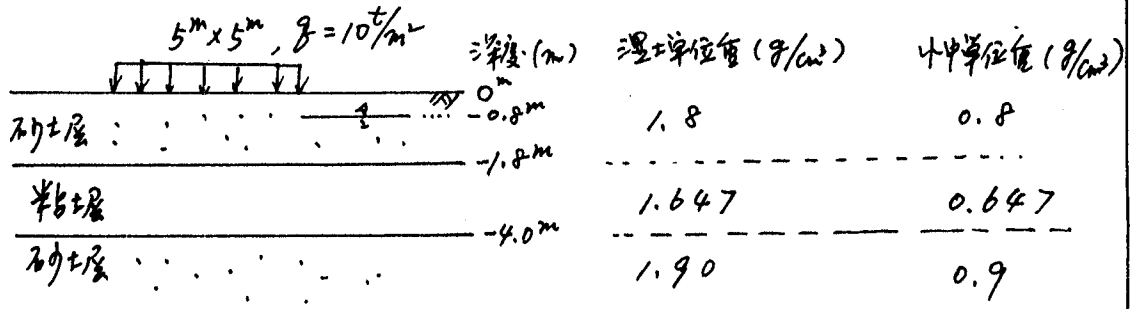 5m×5m, q=10t/m²
深度(m) 湿土単位重(g/cm³) 水中単位重(g/cm³)
0m
砂土层 -0.8m 1.8 0.8
-1.8m
粘土层 1.647 0.647
-4.0m
砂土层 1.90 0.9